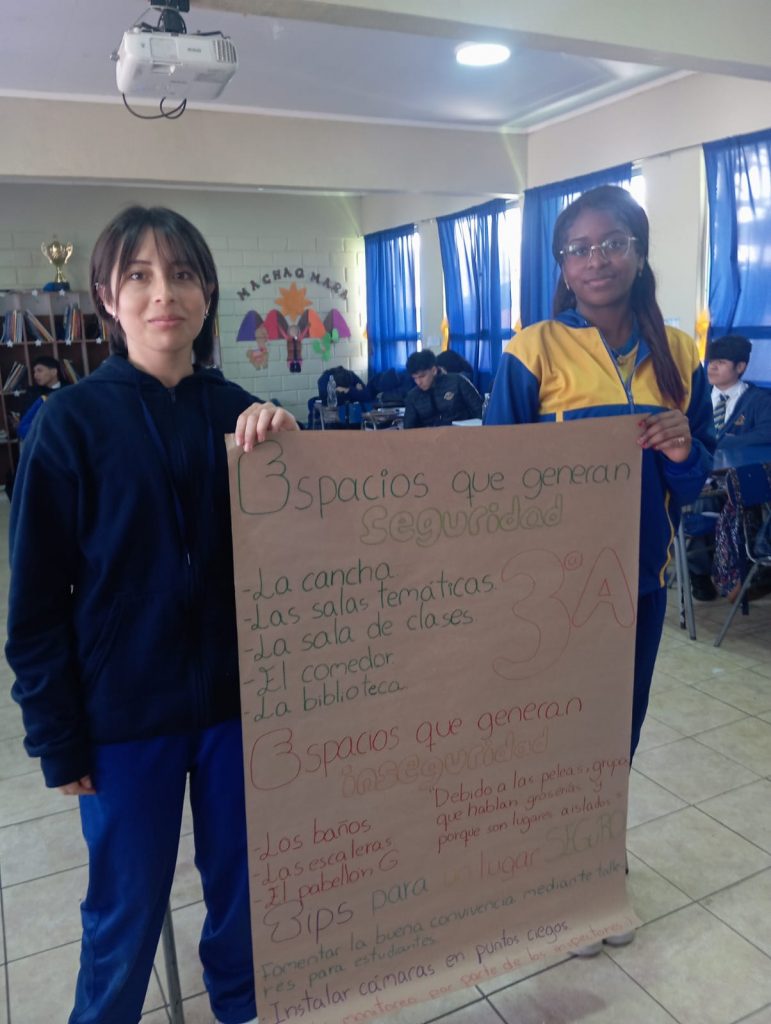 MACHAQ MARA
Espacios que generan
seguridad
3°A
-La cancha
-Las salas temáticas.
-La sala de clases
-El comedor.
-La biblioteca.
Espacios que generan
inseguridad
"Debido a las peleas, grupos
que hablan groserías y
porque son lugares aislados"
-Los baños.
-Las escaleras
-El pabellón G
Tips para un lugar SEGURO
Fomentar la buena convivencia mediante talle-
res para estudiantes.
• Instalar cámaras en puntos ciegos.
monitorea por parte de los inspectores